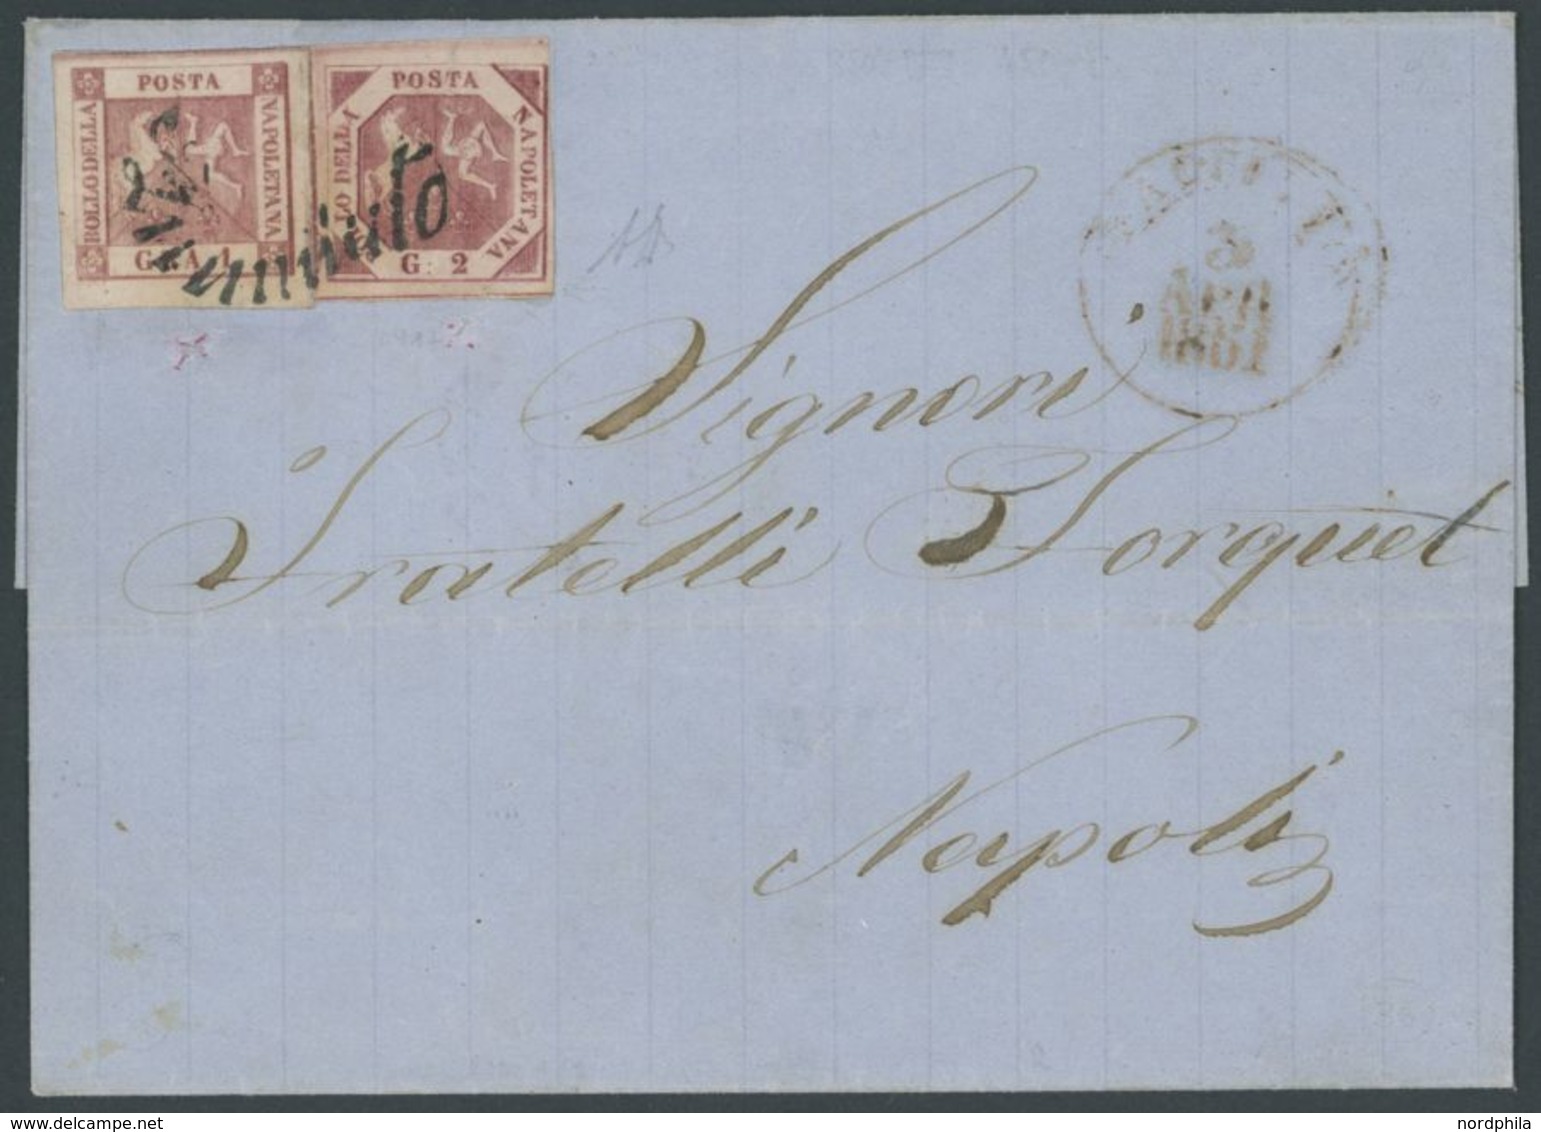 POSTA
BOLLO DELLA
NAPOLETANA
GRA 1
POSTA
LO DELLA
NAPOLETANA
G: 2
annullato
5
APR
1861
Signori
Fratelli Forquet
Napoli
nordphila